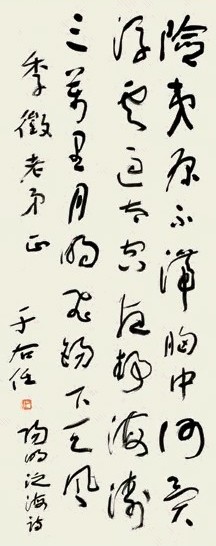 險夷原不滯胸中何異
浮雲過太空夜靜海濤
三萬里月明飛錫下天風
季徵老弟正
于右任
陽明泛海詩